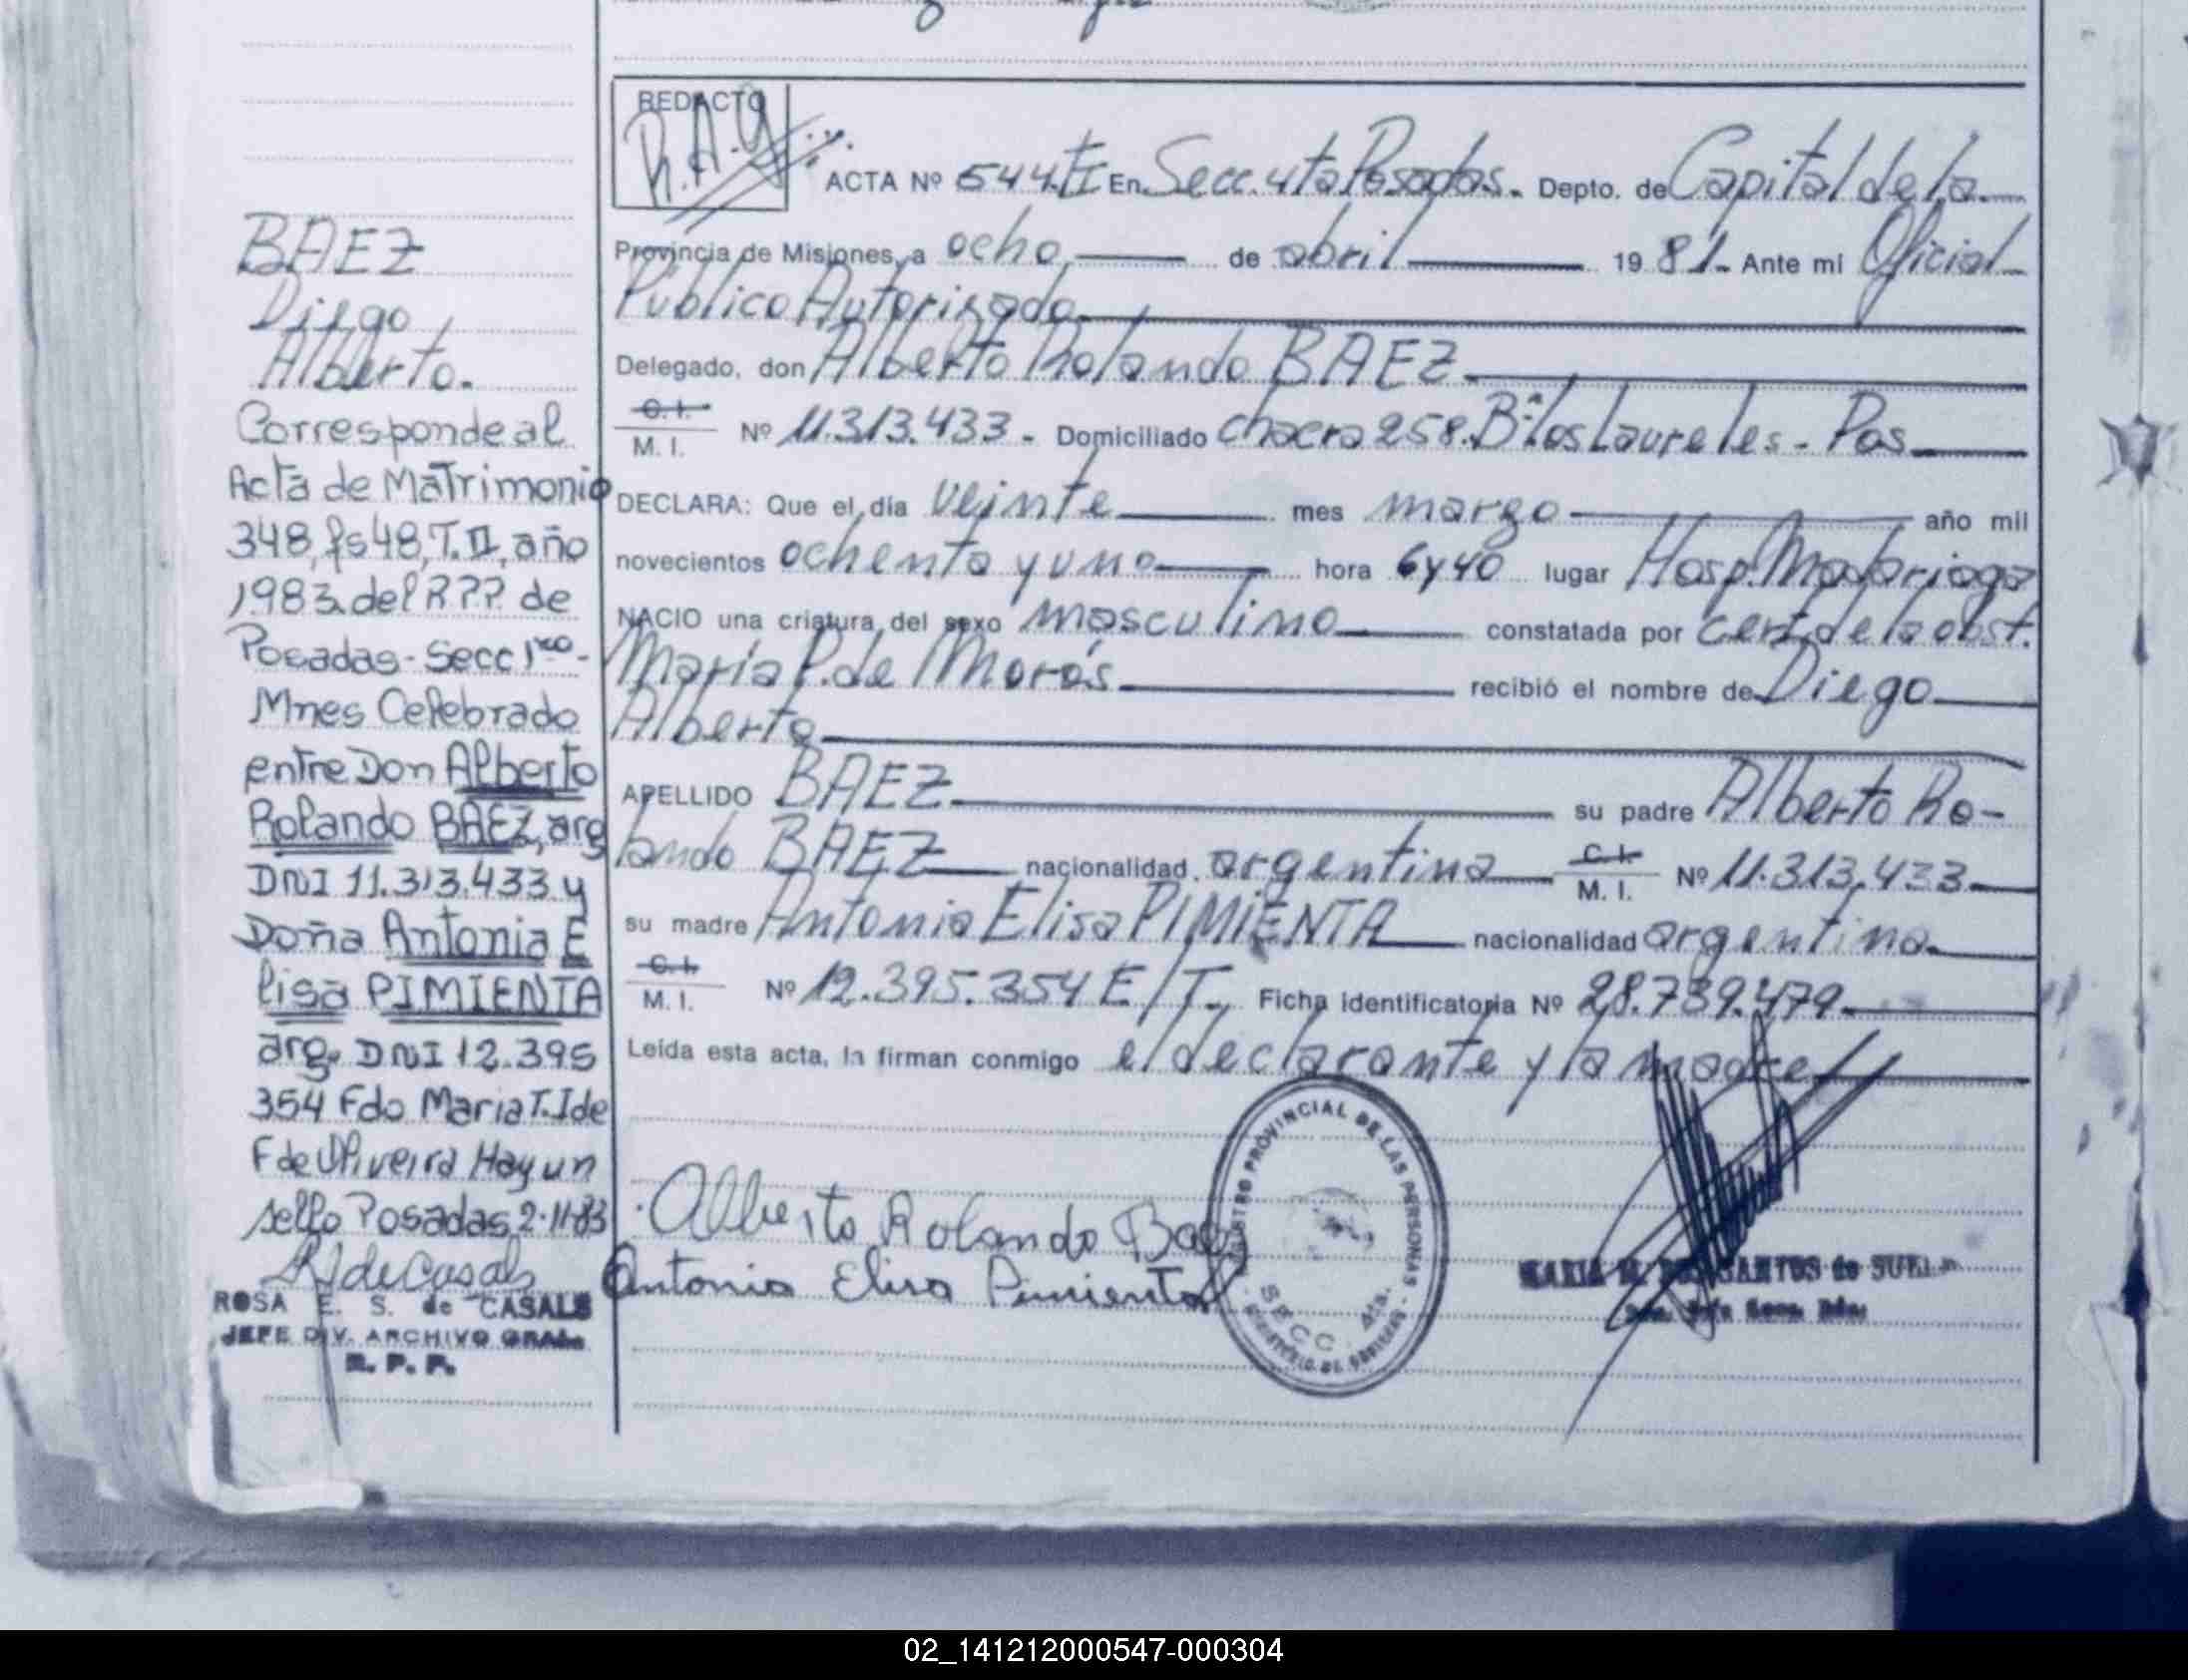 REDACTO
R.A.G
ACTA Nº 544.TI En Secc. 4ta Posadas. Depto. de Capital de la
Provincia de Misiones, a ocho de abril 1981. Ante mi Oficial
Público Autorizado
Delegado, don Alberto Rolando BAEZ
C.I.
M. I. Nº 11.313.433. Domiciliado chacra 258. Bº los Laureles - Pos
DECLARA: Que el día veinte mes marzo año mil
novecientos ochenta y uno hora 6 y 40 lugar Hosp. Madariaga
NACIO una criatura del sexo masculino constatada por cert. de la obst.
María P. de Morás recibió el nombre de Diego
Alberto
APELLIDO BAEZ su padre Alberto Ro-
lando BAEZ nacionalidad argentina C.I. M. I. Nº 11.313.433
su madre Antonia Elisa PIMIENTA nacionalidad argentina
C.I.
M. I. Nº 12.395.354 E/T. Ficha identificatoria Nº 28.739.479.
Leída esta acta, la firman conmigo el declarante y la madre
Alberto Rolando Baez
Antonia Elisa Pimienta
REGISTRO PROVINCIAL DE LAS PERSONAS
SECC. 4ta.
MINISTERIO DE GOBIERNO
MARIA DOS SANTOS de
BAEZ
Diego
Alberto.
Corresponde al
Acta de Matrimonio
348, fs 48, T. II, año
1983 del R.P.P. de
Posadas - Secc 1ra -
Mnes Celebrado
entre Don Alberto
Rolando BAEZ, arg
DNI 11.313.433 y
Doña Antonia E
lisa PIMIENTA
arg. DNI 12.395
354 Fdo Maria T. Ide
F de Oliveira Hay un
sello Posadas, 2-11-83
R de Casals
ROSA E. S. de CASALS
JEFE DIV. ARCHIVO GRAL.
R. P. P.
02_141212000547-000304